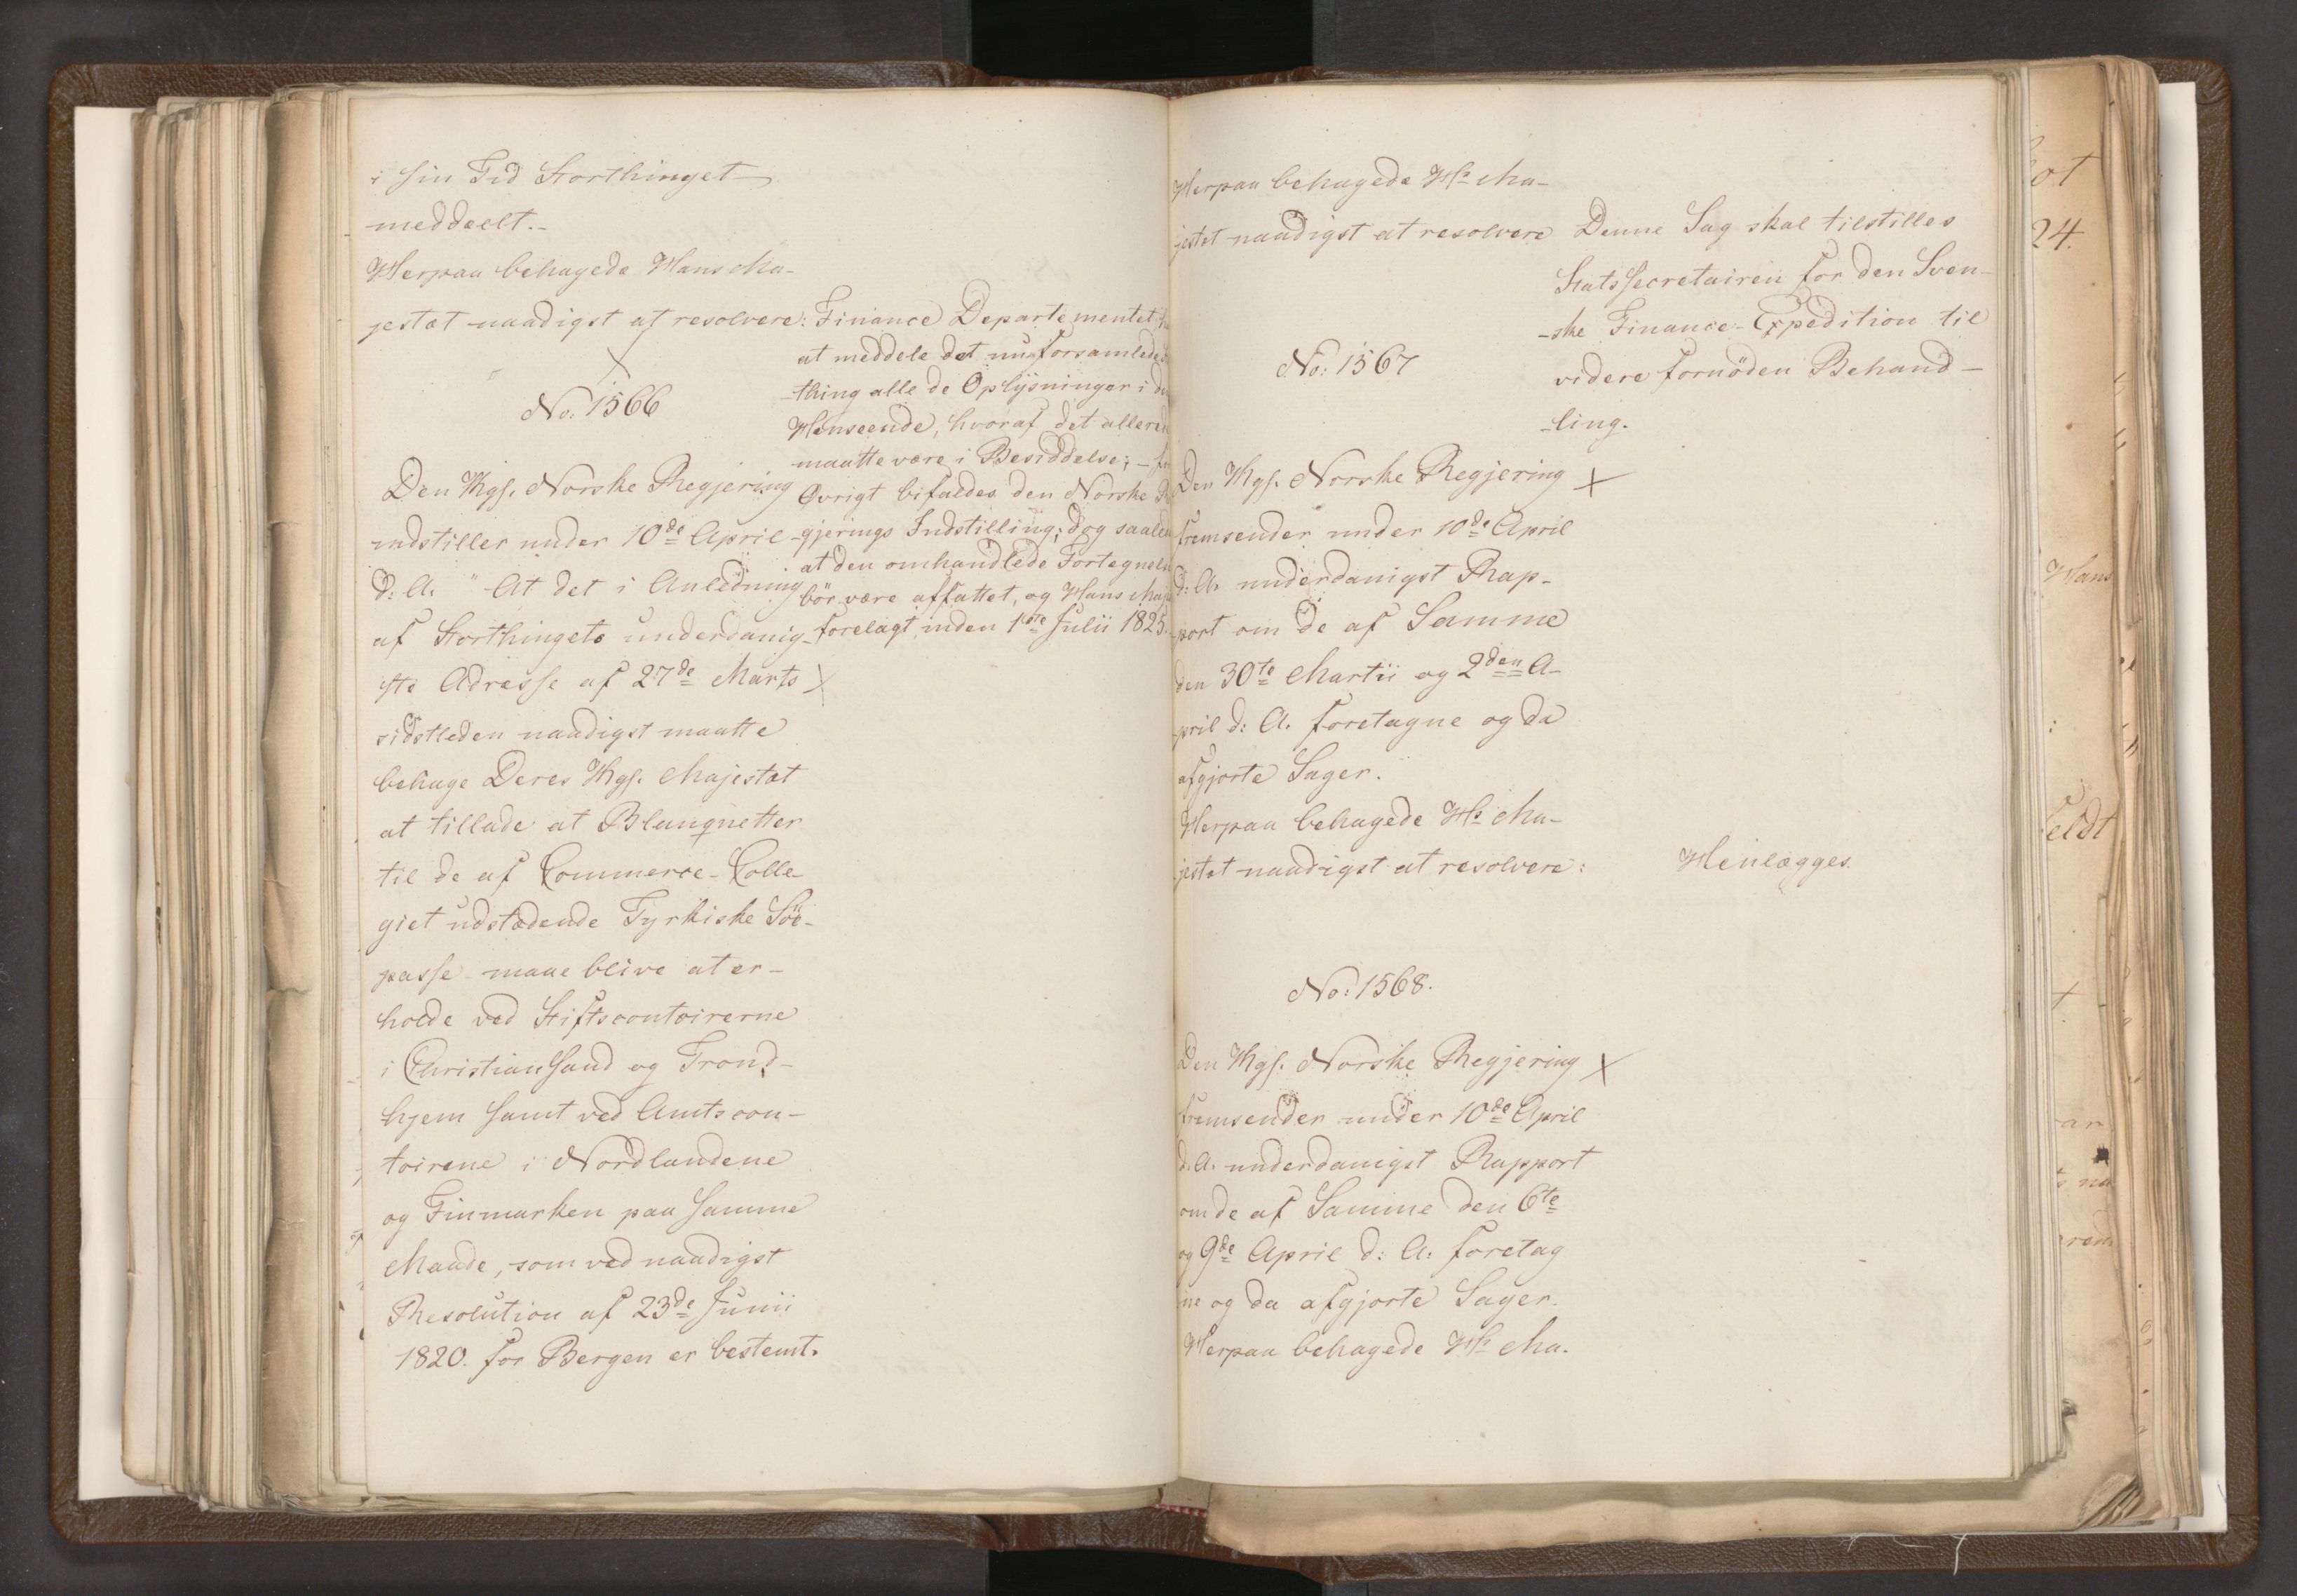 i sin Tid Storthinget
meddeelt.-
Herpaa behagede Hans Ma-
jestæt naadigst at resolvere:
Finance Departementet
at meddele det nu forsamlede
-thing alle de Oplysninger i
Henseende, hvoraf det
maatte være i Besiddelse; -
Øvrigt bifaldes den Norske
-gjerings Indstilling; dog
at den omhandlede
bör være affattet, og Hans
forelagt, inden 1ste Julii 1825.
No: 1566
Den Kgs. Norske Regjering
indstiller under 10de April
d: A. " At det i Anledning
af Storthingets underdanig-
ste Adresse af 27de Marts
sidstleden naadigst maatte
behage Deres Kgs. Majestæt
at tillade at Blanquetter
til de af Commerce-Colle-
giet udstædende Tyrkiske Söe-
passe maae blive at er-
holde ved Stiftscontoirerne
i Christiansand og Trond-
hjem samt ved Amtscon-
toirene i Nordlandene
og Finmarken paa samme
Maade, som ved naadigst
Resolution af 23de Junii
1820. for Bergen er bestemt.
Herpaa behagede Hs Ma-
jestæt naadigst at resolvere
Denne Sag skal tilstilles
Statssecretairen for den Sven-
-ske Finance-Expedition til
videre fornöden Behand-
-ling.
No: 1567
Den Kgs. Norske Regjering
fremsender under 10de April
d: A. underdanigst Rap-
port om de af Samme
den 30te Martii og 2den A-
pril d: A. foretagne og da
afgjorte Sager.
Herpaa behagede Hs Ma-
jestæt naadigst at resolvere:
Henlægges.
No: 1568.
Den Kgs. Norske Regjering
fremsender under 10de April
d. A. underdanigst Rapport
om de af Samme den 6te
og 9de April d: A: foretag
ne og da afgjorte Sager.
Herpaa behagede Hs Ma-
24.
Hans